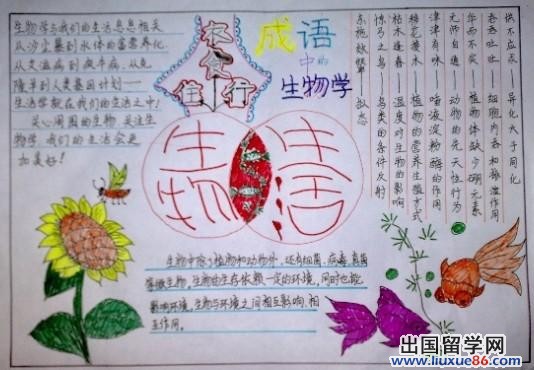 生物学与我们的生活息息相关
从沙尘暴到水体的富营养化
从艾滋病到疯牛病,从克
隆羊到人类基因计划——
生活学就在我们的生活之中!
关心周围的生物 关注生
物学 我们的生活会更
加美好!
衣食
住行
成语
中的
生物学
供不应求——异化大于同化
吞吞吐吐——细胞内吞和胞泄作用
华而不实——植物体缺少硼元素
无师自通——动物的先天性行为
津津有味——唾液淀粉酶的作用
移花接木——植物的营养生殖方式
枯木逢春——温度对生物的影响
惊弓之鸟——鸟类的条件反射
东施效颦——拟态
生物
生活
生物中除了植物和动物外,还有细菌、病毒、真菌
等微生物,生物的生存依赖一定的环境,同时也能
影响环境,生物与环境之间相互影响、相
互作用。
出国留学网
www.liuxue86.com